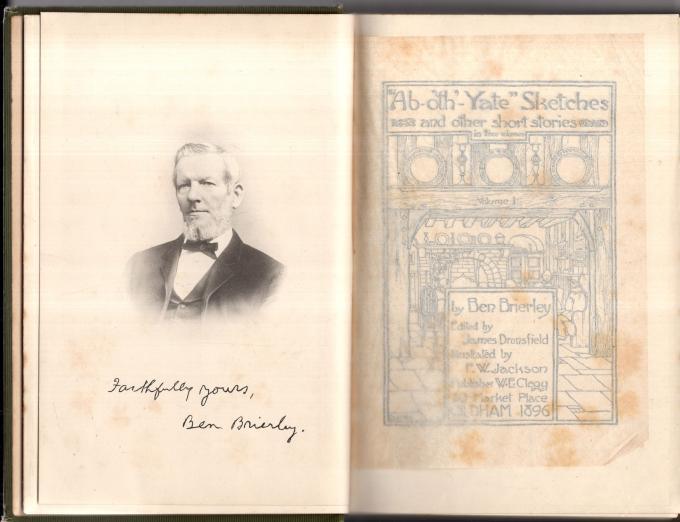 Faithfully yours,
Ben Brierley.
"Ab-o'th'-Yate" Sketches
and other short stories
in three volumes
Volume I
by Ben Brierley
Edited by
James Dronsfield
Illustrated by
F. W. Jackson
Publisher W. E. Clegg
Market Place
OLDHAM 1896